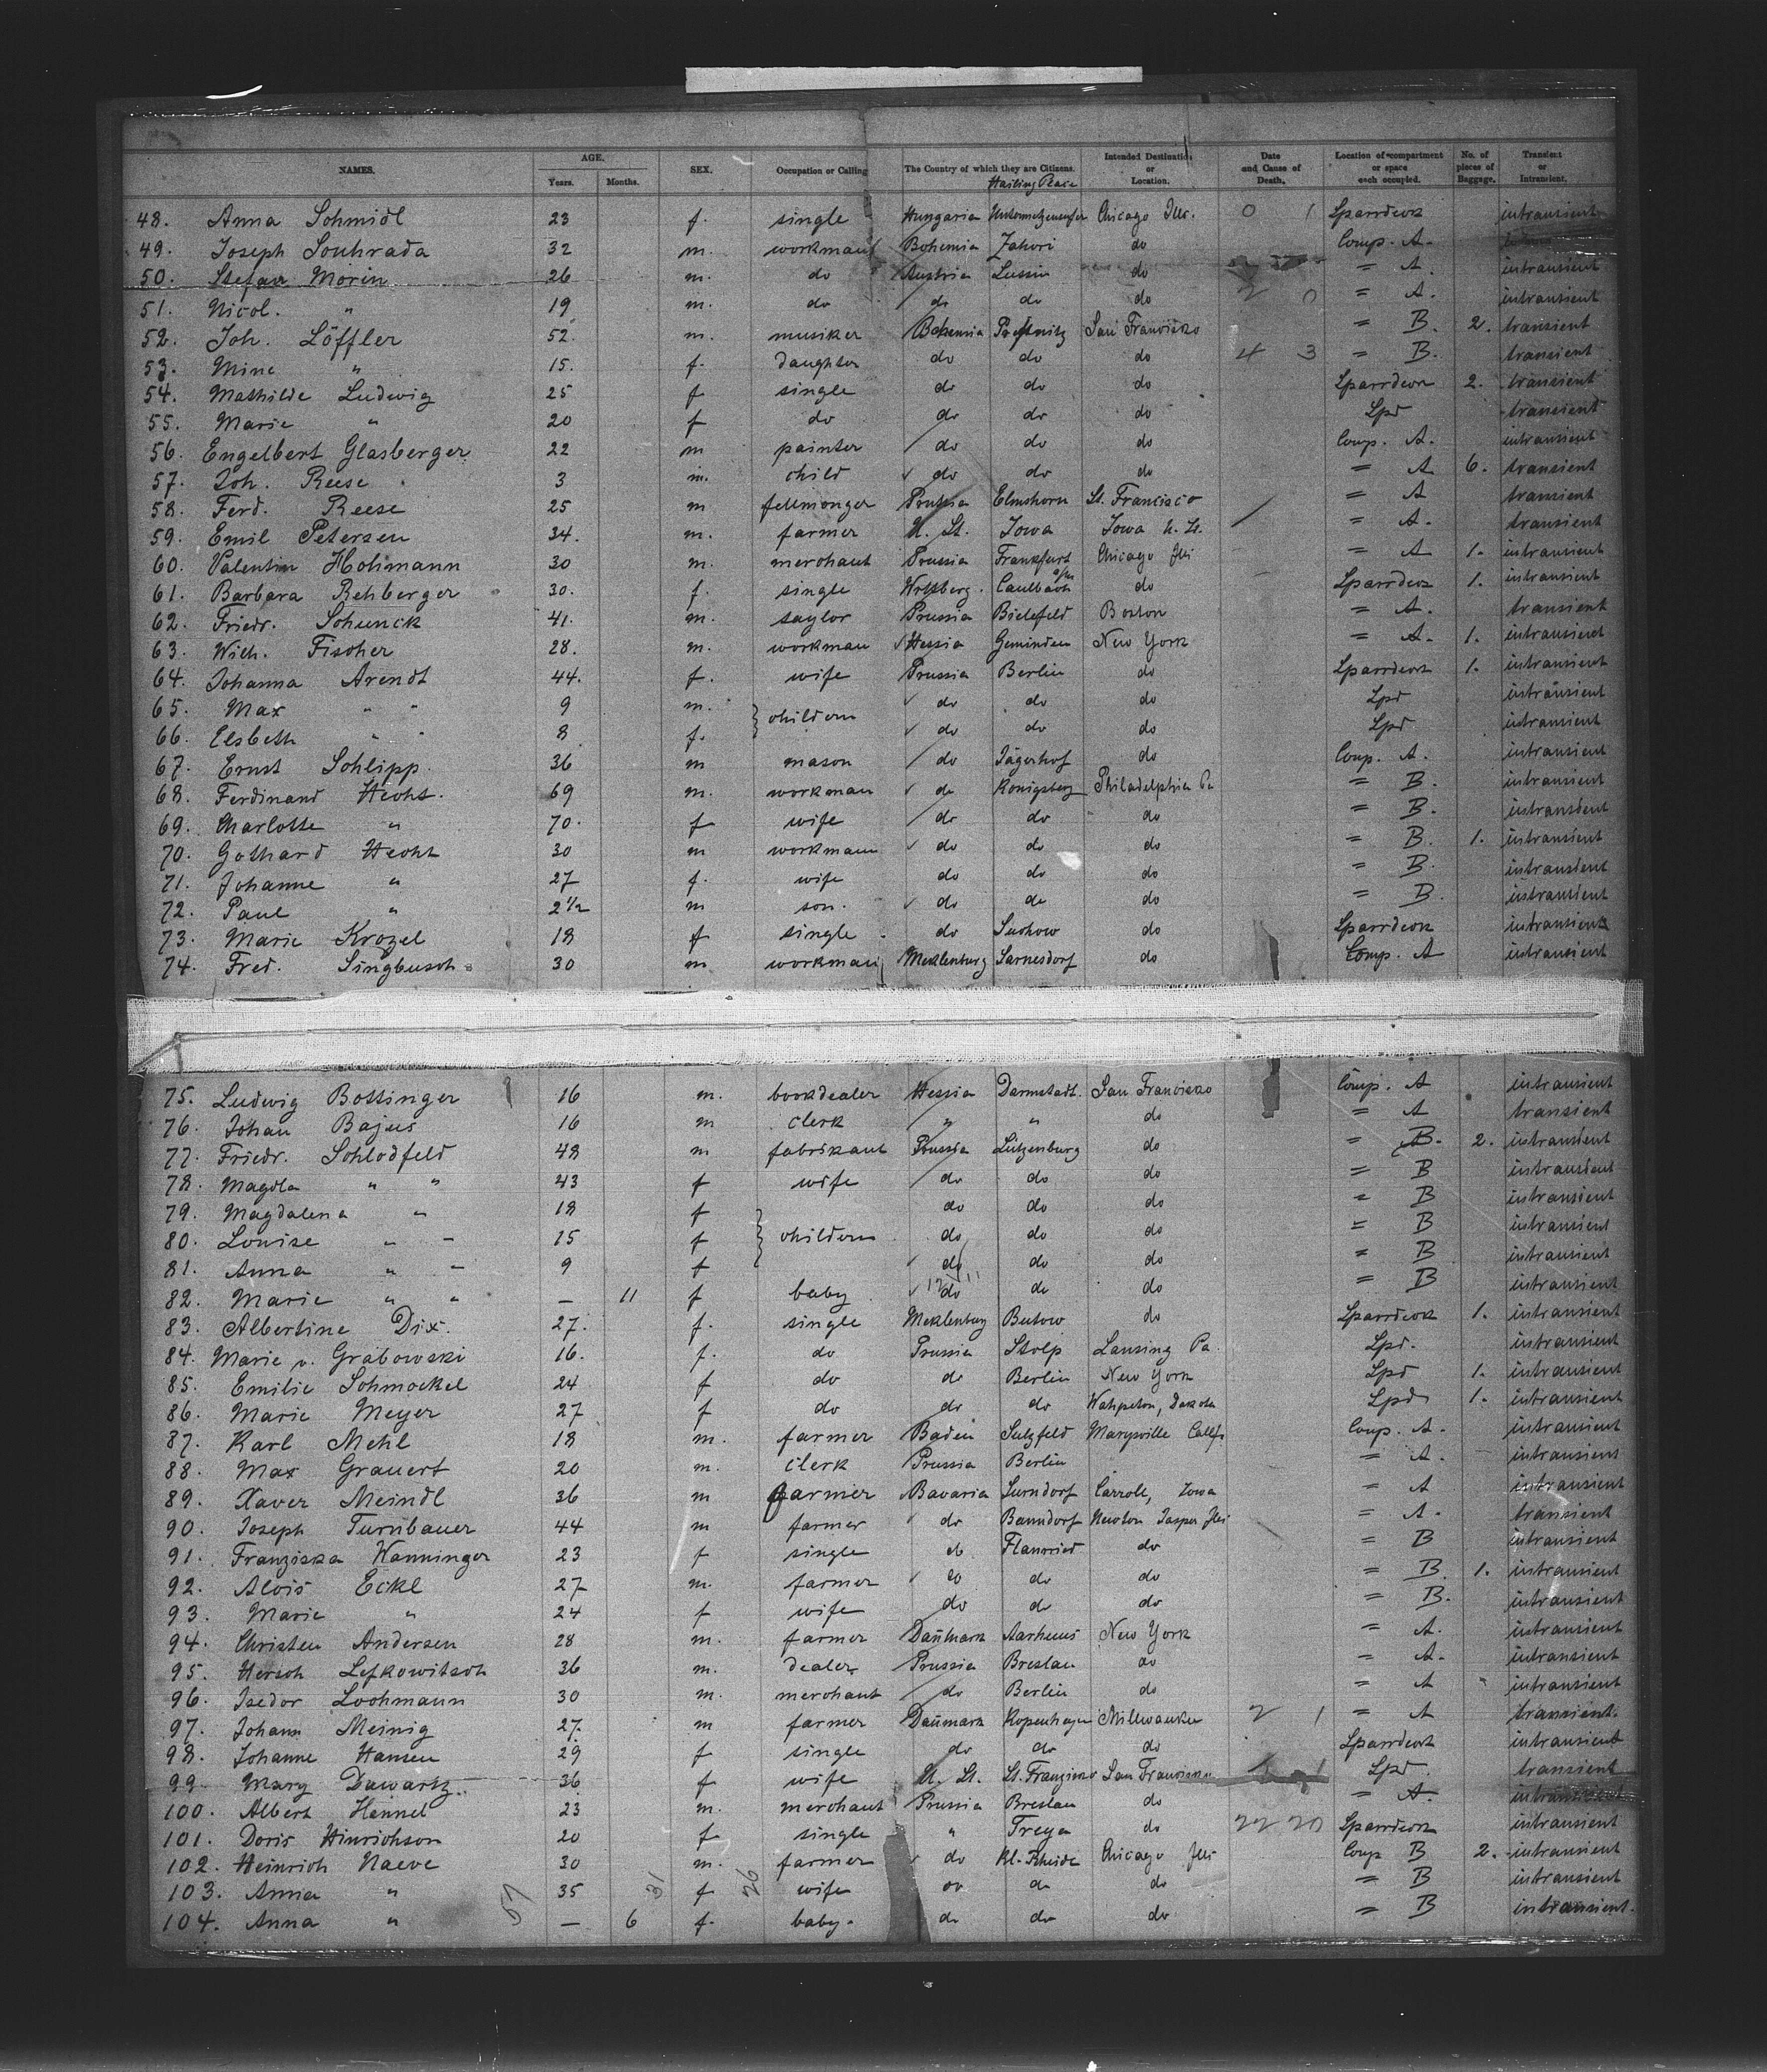 NAMES. AGE. Years. Months. SEX. Occupation or Calling The Country of which they are Citizens. Hailing Place Intended Destination or Location. Date and Cause of Death. Location of compartment or space each occupied. No. of pieces of Baggage. Transient or Intransient.
48. Anna Schmidl 23 f. single Hungaria Chicago Ills. 0 1 Sparrdeck intransient
49. Joseph Souhrada 32 m. workman Bohemia Zahori do Comp. A.
50. Stefan Morin 26 m. do Austria Lussin do = A. intransient
51. Nicol. " 19 m. do do do do 2 0 = A. intransient
52. Joh. Löffler 52 m. musiker Bohemia San Francisko = B. 2. transient
53. Mine " 15. f. daughter do do do 4 3 = B. transient
54. Mathilde Ludwig 25 f single do do do Sparrdeck 2. transient
55. Marie " 20 f do do do do Spd transient
56. Engelbert Glasberger 22 m painter do do do Comp. A. intransient
57. Joh. Reese 3 m. child do do do = A 6. transient
58. Ferd. Reese 25 m fellmonger Prussia Elmshorn St. Francisco = A transient
59. Emil Petersen 34. m. farmer U. St. Iowa Iowa U. St. = A. transient
60. Valentin Hohmann 30 m. merchant Prussia Frankfurt a/m Chicago Ills = A 1. intransient
61. Barbara Rehberger 30. f. single Wrttberg. Caulbach do Sparrdeck 1. intransient
62. Friedr. Schunck 41. m. taylor Prussia Bielefeld Boston = A. transient
63. Wilh. Fischer 28. m. workman Hessia Geminden New York = A. 1. intransient
64. Johanna Arendt 44. f. wife Prussia Berlin do Sparrdeck 1. intransient
65. Max " " 9 m. childern do do do Spd intransient
66. Elsbeth " " 8 f. do do do Spd intransient
67. Ernst Schlipp. 36 m mason do Jägerhof do Comp. A. intransient
68. Ferdinand Hecht. 69 m. workman do Königsberg Philadelphia Pa = B. intransient
69. Charlotte " 70. f wife do do do = B. intransient
70. Gothard Hecht 30 m workmann do do do = B. 1. intransient
71. Johanne " 27 f. wife do do do = B. intransient
72. Paul " 2½ m son. do do do = B. intransient
73. Marie Krozel 18 f single do Suckow do Sparrdeck intransient
74. Fred. Singbusch 30 m workman Meklenburg Sarnesdorf do Comp. A intransient
75. Ludwig Bottinger 16 m. bookdealer Hessia Darmstadt. San Francisko Comp. A intransient
76. Johan Bajus 16 m clerk " " do = A transient
77. Friedr. Schlodfeld 48 m fabrikant Prussia Lützenburg do = B. 2. intransient
78. Magdla " " 43 f wife do do do = B intransient
79. Magdalena " 18 f do do do = B intransient
80. Louise " " 15 f childern do do do = B intransient
81. Anna " " 9 f do do do = B intransient
82. Marie " " — 11 f baby do do do = B intransient
83. Albertine Dix. 27. f. single Meklenburg Butow do Sparrdeck 1. intransient
84. Marie v. Grabowski 16. f. do Prussia Stolp Lansing Pa. Spd. intransient
85. Emilie Schmockel 24 f do do Berlin New York Spd 1. intransient
86. Marie Meyer 27 f do do do Wahpeton, Dakota Spd 1. intransient
87. Karl Mehl 18 m. farmer Baden Sulzfeld Marysville Calif. Comp. A. intransient
88. Max Grauert 20 m. clerk Prussia Berlin = A. intransient
89. Xaver Meindl 36 m farmer Bavaria Surndorf Carroll, Iowa = A intransient
90. Joseph Turnbauer 44 m farmer do Banndorf Newton Jasper Ills = A. transient
91. Franziska Wanninger 23 f single do do = B intransient
92. Alois Eckl 27 m. farmer do do do = B. 1. intransient
93. Marie " 24 f wife do do do = B. intransient
94. Christen Andersen 28 m. farmer Danmark Aarheus New York = A. intransient
95. Hersch Lefkowitsch 36 m. dealer Prussia Breslau do = A. intransient
96. Isedor Lochmann 30 m. merchant do Berlin do = A intransient
97. Johann Meinig 27. m farmer Danmark Kopenhagen Millwaukee 2 1 = A transient.
98. Johanne Hansen 29 f single do do do Sparrdeck intransient
99. Mary Dawartz. 36 f wife U. St. St. Franzisko San Francisko Spd. transient
100. Albert Hennel 23 m. merchant Prussia Breslau do = A. intransient
101. Doris Hinrichson 20 f single " Treya do 22 20 Sparrdeck intransient
102. Heinrich Naeve 30 m. farmer do Kl. Rheide Chicago Ills Comp B 2. intransient
103. Anna " 35 f wife do do do = B intransient
104. Anna " — 6 f. baby. do do do = B intransient.
57 31 26